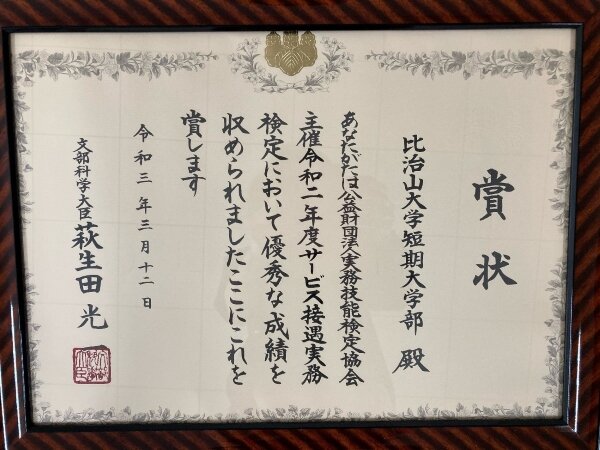 賞状
比治山大学短期大学部 殿
あなたがたは公益財団法人実務技能検定協会
主催令和二年度サービス接遇実務
検定において優秀な成績を
収められましたここにこれを
賞します
令和三年三月十二日
文部科学大臣 萩生田光一